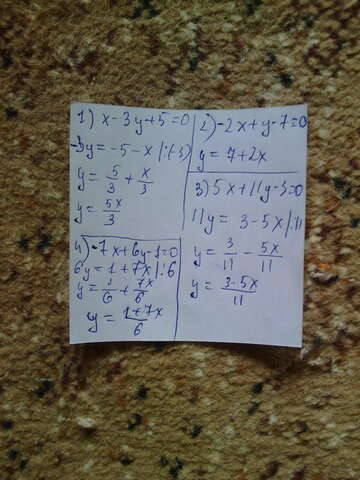 1) x - 3y + 5 = 0
-3y = -5 - x |:(-3)
y = 5/3 + x/3
y = 5x/3
2) -2x + y - 7 = 0
y = 7 + 2x
3) 5x + 11y - 3 = 0
11y = 3 - 5x |:11
y = 3/11 - 5x/11
y = 3-5x/11
4) -7x + 6y - 1 = 0
6y = 1 + 7x |:6
y = 1/6 + 7x/6
y = 1+7x/6